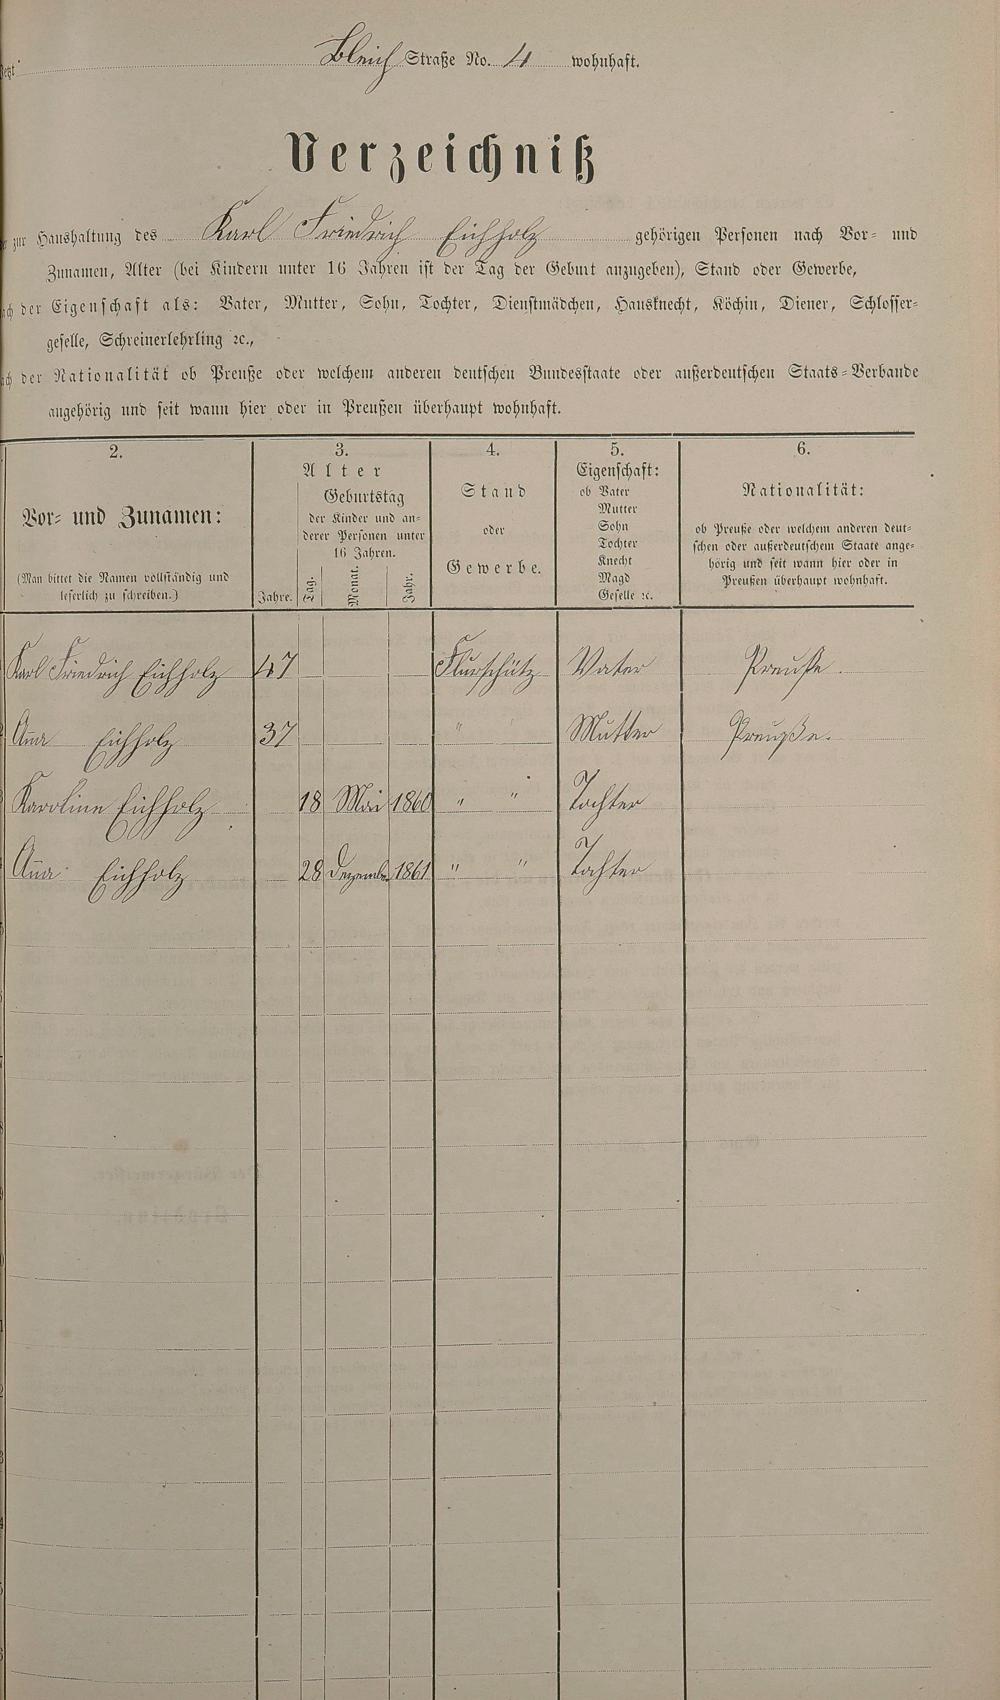 Bleich Straße No. 4 wohnhaft.
Verzeichniß
zur Haushaltung des Karl Friedrich Eichholz gehörigen Personen nach Vor- und
Zunamen, Alter (bei Kindern unter 16 Jahren ist der Tag der Geburt anzugeben), Stand oder Gewerbe,
der Eigenschaft als: Vater, Mutter, Sohn, Tochter, Dienstmädchen, Hausknecht, Köchin, Diener, Schlosser-
geselle, Schreinerlehrling ꝛc.,
der Nationalität ob Preuße oder welchem anderen deutschen Bundesstaate oder außerdeutschen Staats-Verbande
angehörig und seit wann hier oder in Preußen überhaupt wohnhaft.
2. 3. 4. 5. 6.
Vor- und Zunamen:
(Man bittet die Namen vollständig und
leserlich zu schreiben.)
Alter
Geburtstag
der Kinder und an-
derer Personen unter
16 Jahren.
Jahre. Tag. Monat. Jahr.
Stand
oder
Gewerbe.
Eigenschaft:
ob Vater
Mutter
Sohn
Tochter
Knecht
Magd
Geselle ꝛc.
Nationalität:
ob Preuße oder welchem anderen deut-
schen oder außerdeutschem Staate ange-
hörig und seit wann hier oder in
Preußen überhaupt wohnhaft.
Karl Friedrich Eichholz 47 Flurschütz Vater Preuße.
Aña Eichholz 37 " " Mutter Preuße.
Karoline Eichholz 18 Mai 1860 " " Tochter
Aña Eichholz 28 Dezemb. 1861 " " Tochter